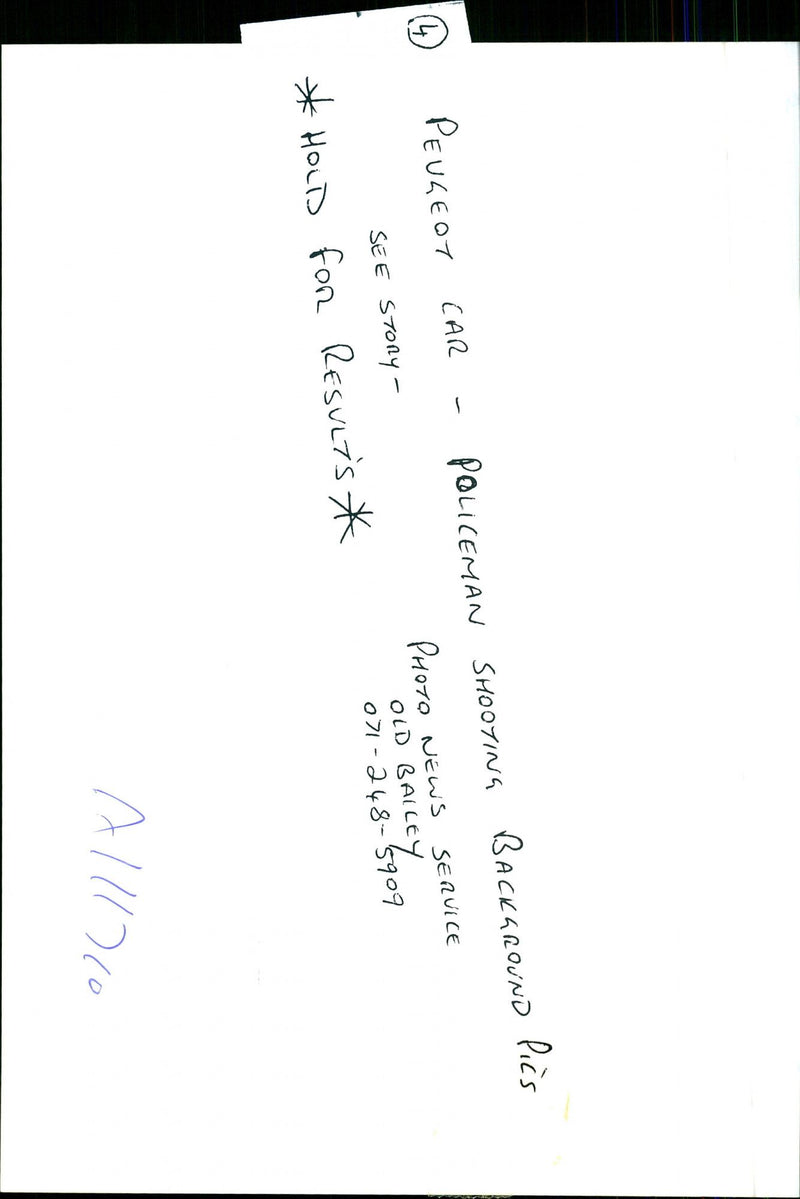 ④ PEUGEOT CAR - POLICEMAN SHOOTING BACKGROUND PIC'S
SEE STORY -
* HOLD FOR RESULT'S *
PHOTO NEWS SERVICE
OLD BAILEY
071-248-5909